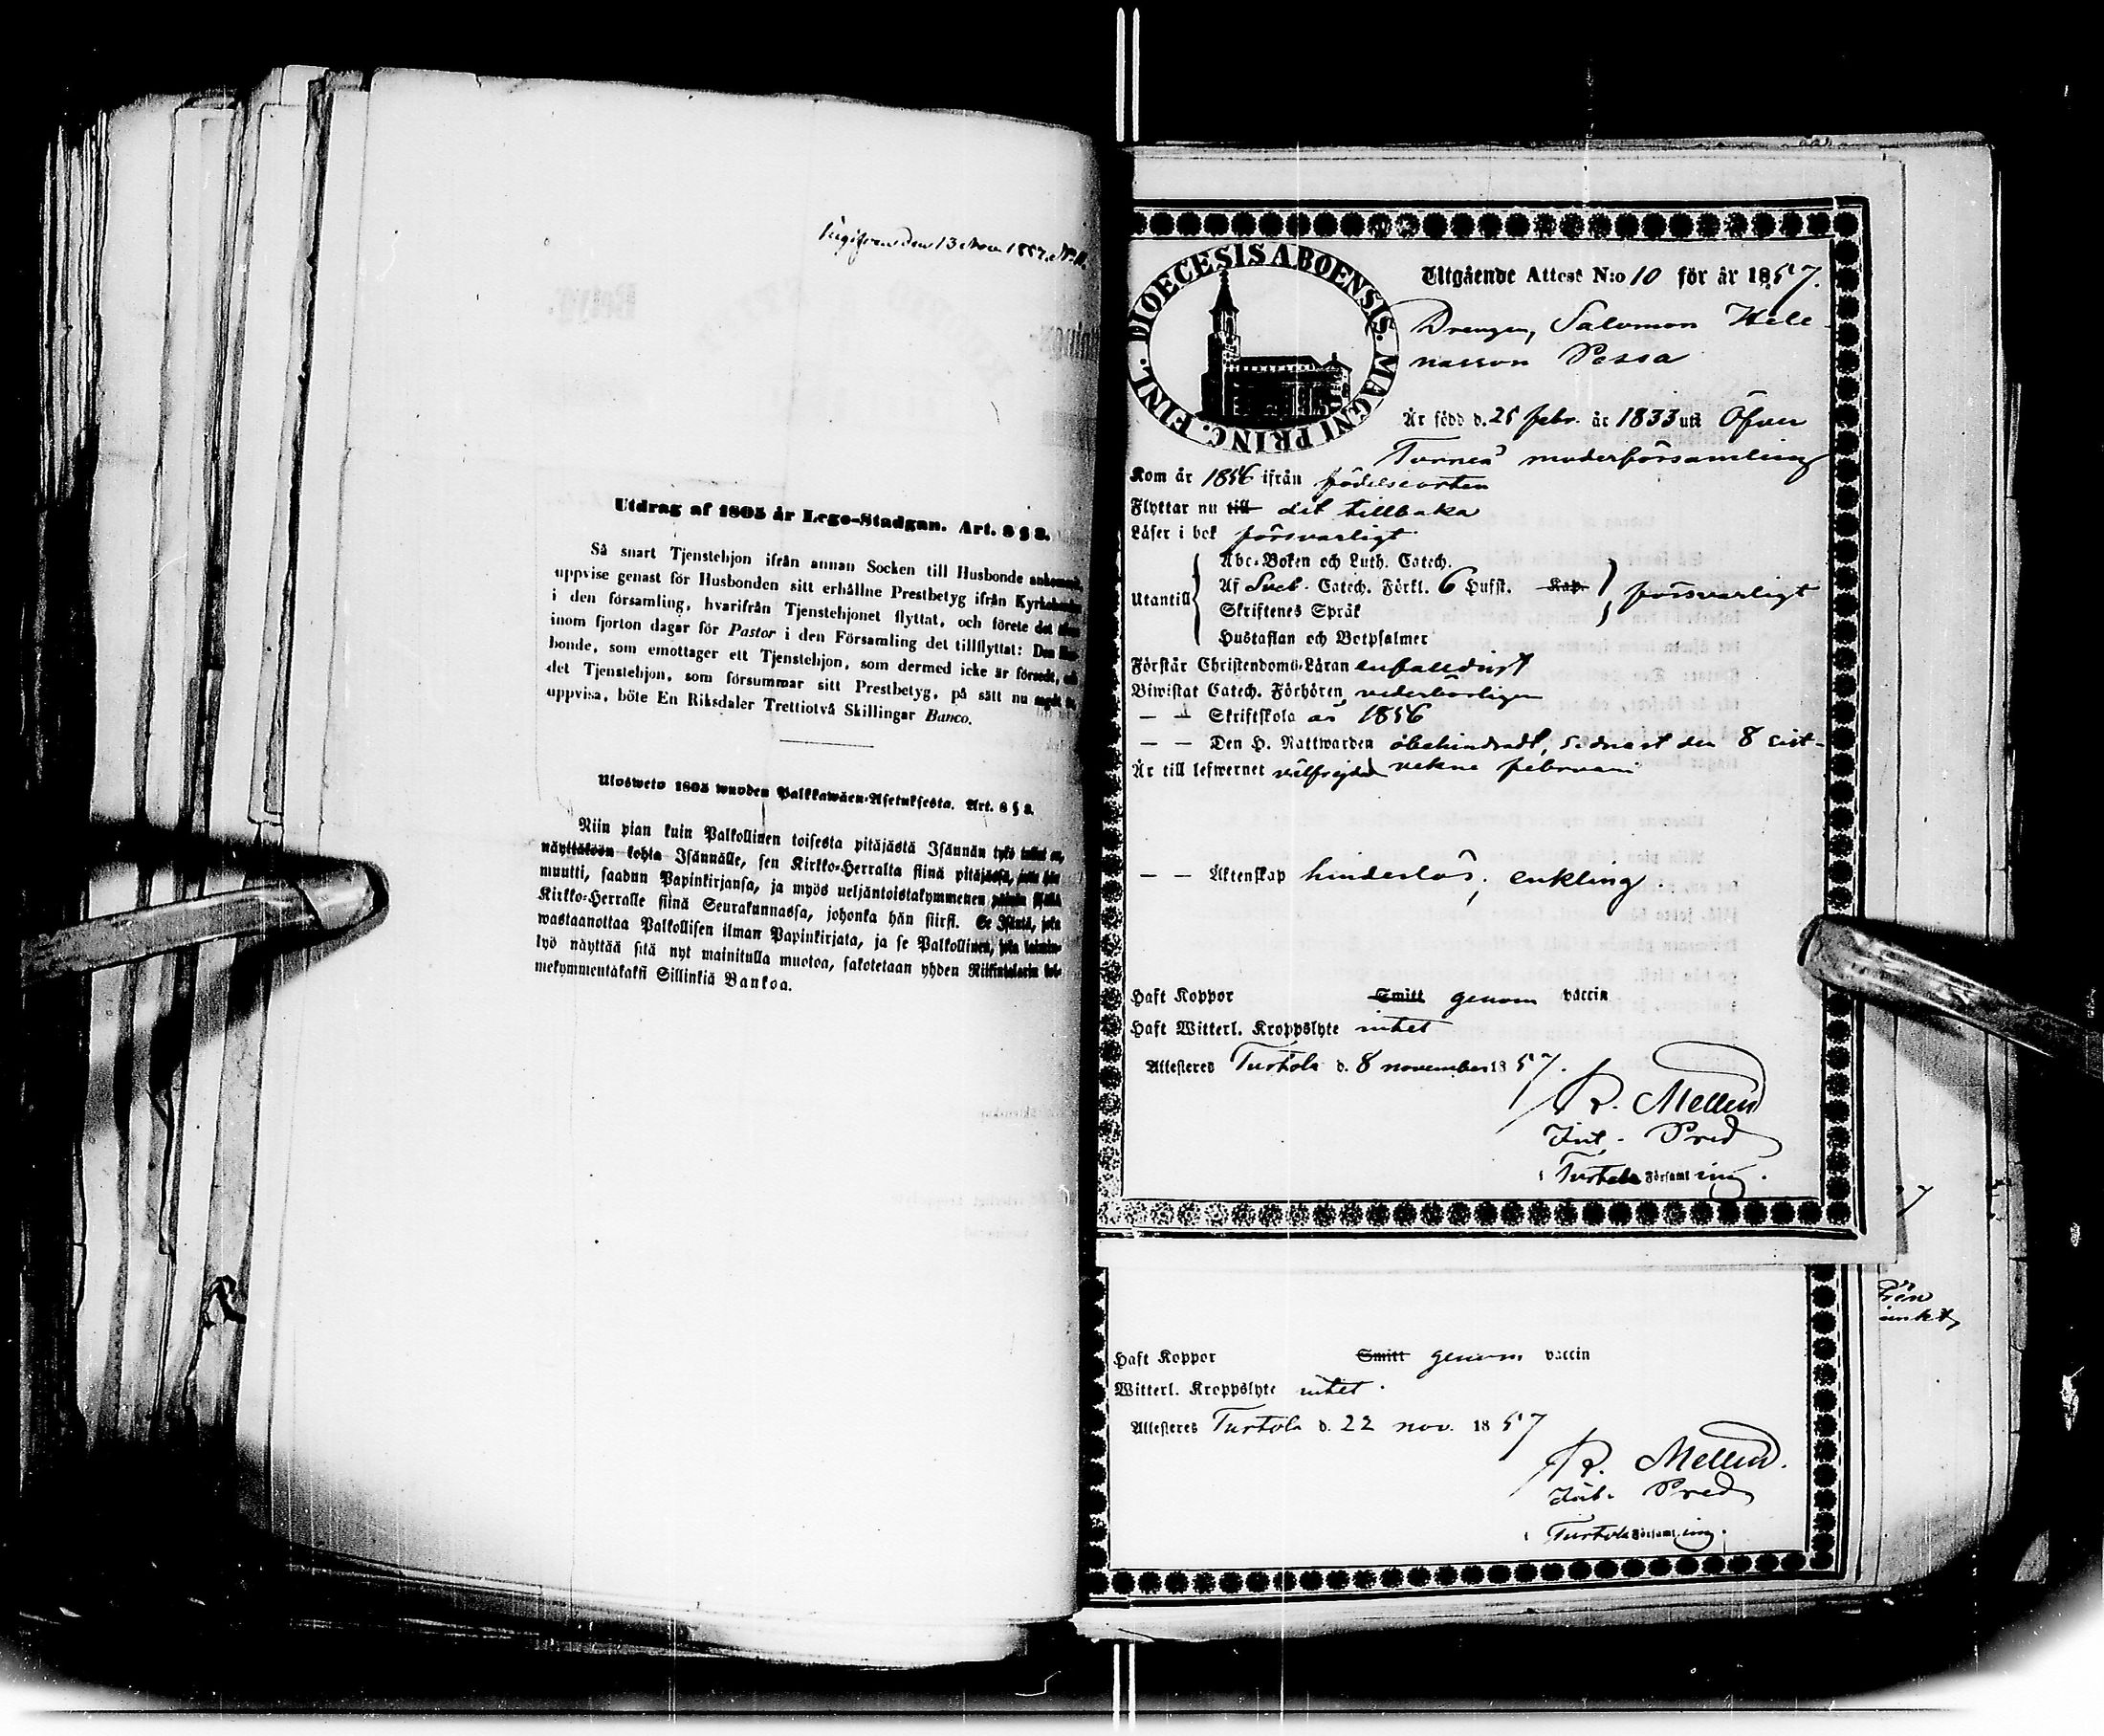 den 13 Nov 1857. N:o
Utdrag af 1805 år Lego-Stadgan. Art. 8 § 8.
Så snart Tjenstehjon ifrån annan Socken till Husbonde ankommit,
uppvise genast för Husbonden sitt erhållne Prestbetyg ifrån Kyrkoherden
i den församling, hvarifrån Tjenstehjonet flyttat, och förete det
inom fjorton dagar för Pastor i den Församling det tillflyttat: Den Hus-
bonde, som emottager ett Tjenstehjon, som dermed icke är försedt, och
det Tjenstehjon, som försummar sitt Prestbetyg, på sätt nu sagdt är,
uppvisa, böte En Riksdaler Trettiotvå Skillingar Banco.
Ulosweto 1805 wuoden Palkkawäen-Asetuksesta. Art. 8 § 8.
Niin pian kuin Palkollinen toisesta pitäjästä Isännän tykö tullut on,
näyttäköön kohta Isännälle, sen Kirkko-Herralta siinä pitäjässä, josta hän
muutti, saadun Papinkirjansa, ja myös neljäntoistakymmenen päiwän sisällä
Kirkko-Herralle siinä Seurakunnassa, johonka hän siirsi. Se Isäntä, joka
wastaanottaa Palkollisen ilman Papinkirjata, ja se Palkollinen, joka laimin-
lyö näyttää sitä nyt mainitulla muotoa, sakotetaan yhden Riikintalerin kol-
mekymmentäkaksi Sillinkiä Bankoa.
DIOECESIS ABOENSIS. MAGNI PRINC. FINL.
Utgående Attest N:o 10 för år 1857.
Drengen, Salomon Hele-
nasson Pessa
Är född d. 25 febr. år 1833 uti Öfver
Torneå moderförsamling
Kom år 1856 ifrån födelseorten
Flyttar nu till dit tillbaka
Läser i bok försvarligt
Abc-Boken och Luth. Catech.
Utantill Af Sveb. Catech. Förkl. 6 Hufst. Kap. försvarligt
Skriftenes Språk
Hustaflan och Botpsalmer
Förstår Christendoms-Läran enfaldigt
Biwistat Catech. Förhören vederbörligen
— — Skriftskola år 1856
— — Den H. Nattwarden obehindradt, sednast den 8 sist-
Är till lefwernet välfrejdad vekne februari
— — Äktenskap hinderlös, enkling.
Haft Koppor Smitt genom vaccin
Haft Witterl. Kroppslyte intet
Attesteras Turtola d. 8 november 1857.
R. Mellin
Int. Pred
i Turtola Församling.
Haft Koppor Smitt genom vaccin
Witterl. Kroppslyte intet.
Attesteras Turtola d. 22 nov. 1857
R. Mellin.
Int. Pred
i Turtola Församling.